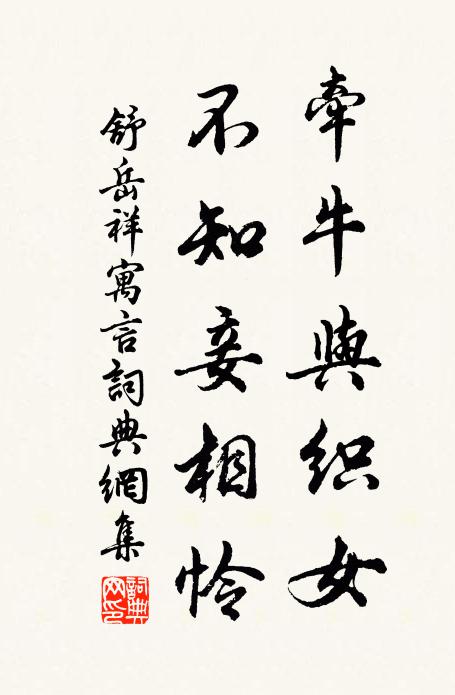 牽牛與织女
不知妾相怜
舒岳祥寓言詞典網集
詞典网印